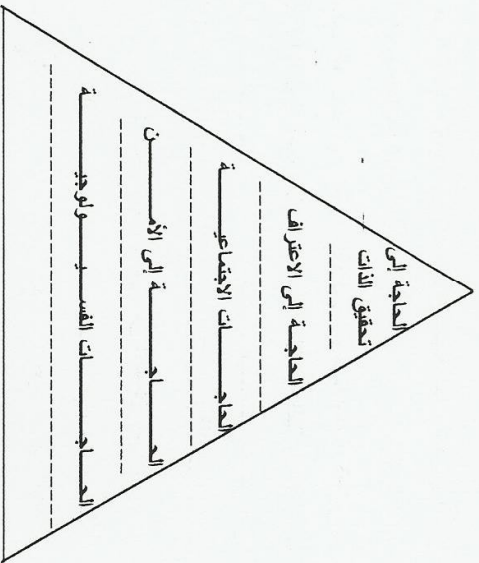 الحاجة إلى
تحقيق الذات
الحاجة إلى الاعتراف
الحاجات الاجتماعية
الحاجة إلى الأمن
الحاجات الفسيولوجية